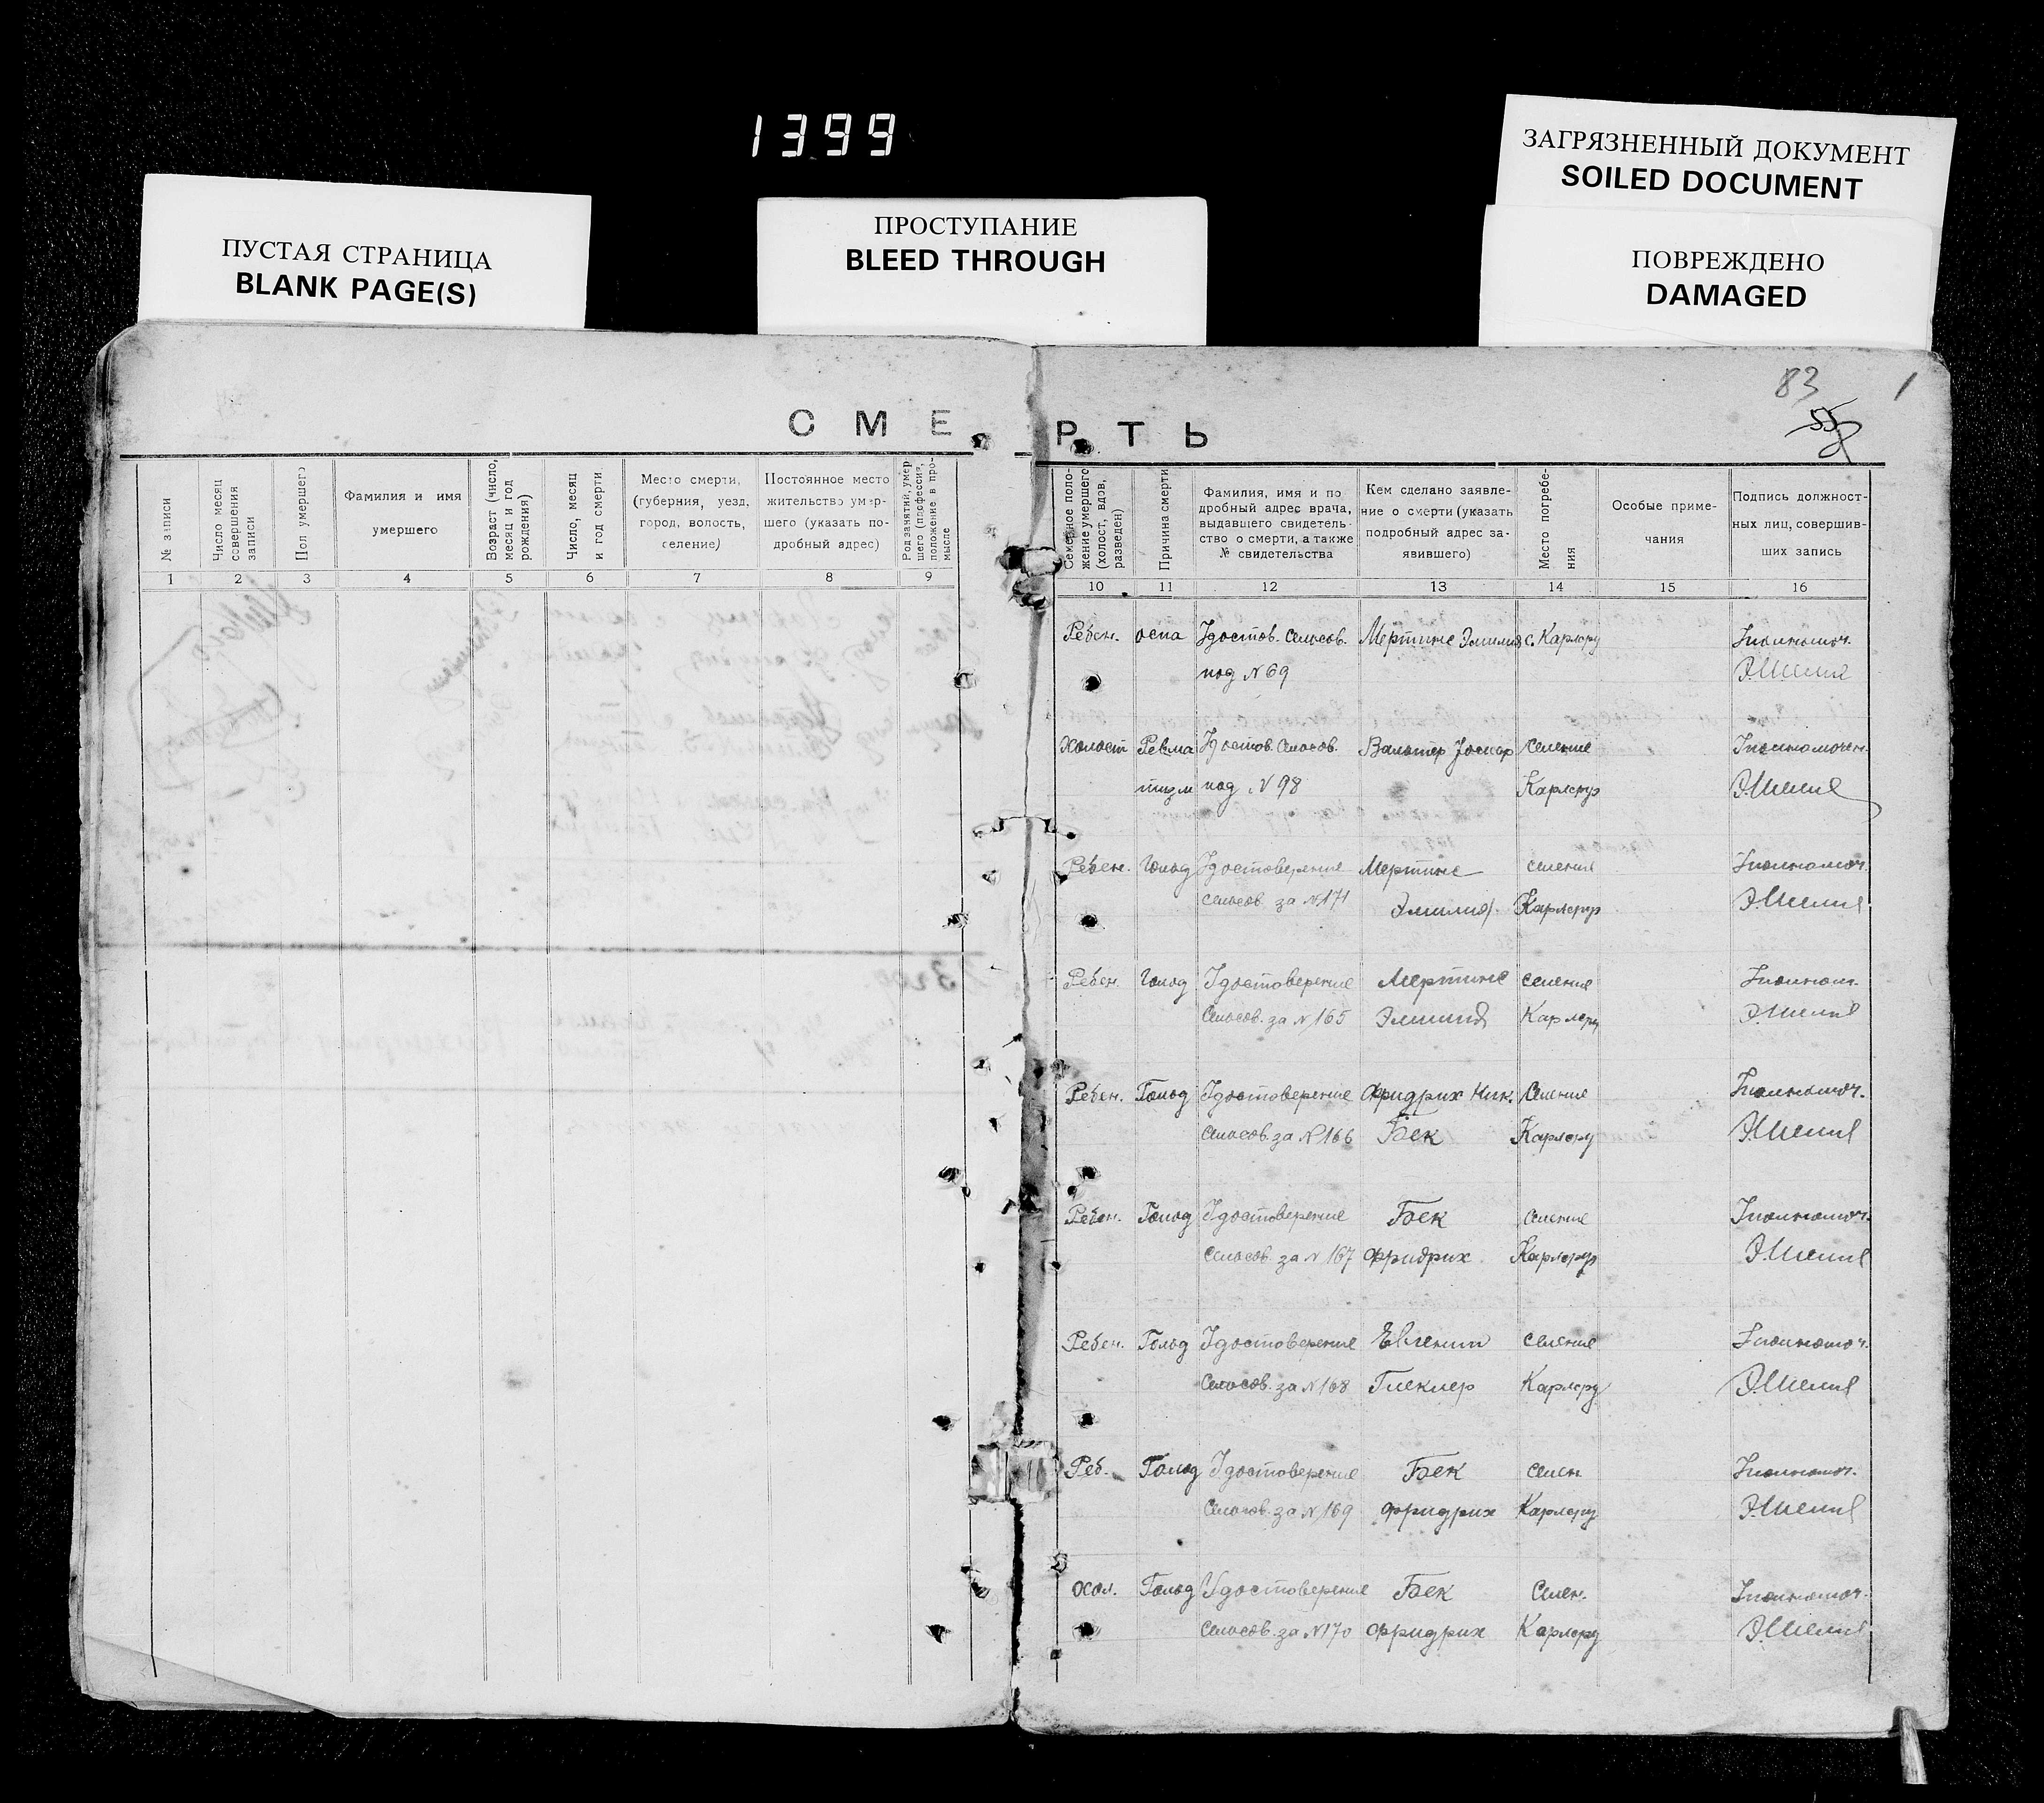 1399
ЗАГРЯЗНЕННЫЙ ДОКУМЕНТ
SOILED DOCUMENT
ПУСТАЯ СТРАНИЦА
BLANK PAGE(S)
ПРОСТУПАНИЕ
BLEED THROUGH
ПОВРЕЖДЕНО
DAMAGED
83
1
СМЕРТЬ
№ записи
Число месяц
совершения
записи
Пол умершего
Фамилия и имя
умершего
Возраст (число,
месяц и год
рождения)
Число, месяц
и год смерти
Место смерти,
(губерния, уезд,
город, волость,
селение)
Постоянное место
жительство умер-
шего (указать по-
дробный адрес)
Род занятий, умер-
шего (профессия,
положение в про-
мысле
1 2 3 4 5 6 7 8 9
Семейное поло-
жение умершего
(холост, вдов,
разведен)
Причина смерти
Фамилия, имя и по
дробный адрес врача,
выдавшего свидетель-
ство о смерти, а также
№ свидетельства
Кем сделано заявле-
ние о смерти (указать
подробный адрес за-
явившего)
Место погребе-
ния
Особые приме-
чания
Подпись должност-
ных лиц, совершив-
ших запись
10 11 12 13 14 15 16
Ребен. оспа Удостов. сельсов. Мертинс Эмилия с. Карлсру Уполномоч.
под N 69
Холост Ревма Удостов. сельсов. Вальтер селение Уполномочен.
тизм под N 98 Карлсруэ
Ребен. Голод Удостоверение Мертинс селения Уполномоч.
сельсов. за N 171 Эмилия Карлсруэ
Ребен. Голод Удостоверение Мертинс селения Уполном.
Сельсов. за N 165 Карлсру
Ребен. Голод Удостоверение Фридрих Ник. Селение Уполномоч.
Сельсов. за N 166 Бек Карлсру
Ребен. Голод Удостоверение Бек селение Уполномоч.
Сельсов. за N 167 Фридрих Карлсруэ
Ребен. Голод Удостоверение селение Уполномоч.
Сельсов. за N 168 Карлсру
Реб. Голод Удостоверение Бек селен. Уполномоч.
Сельсов. за N 169 Фридрих Карлсру
Хол. Голод Удостоверение Бек Селен. Уполномоч.
Сельсов. за N 170 Фридрих Карлсру